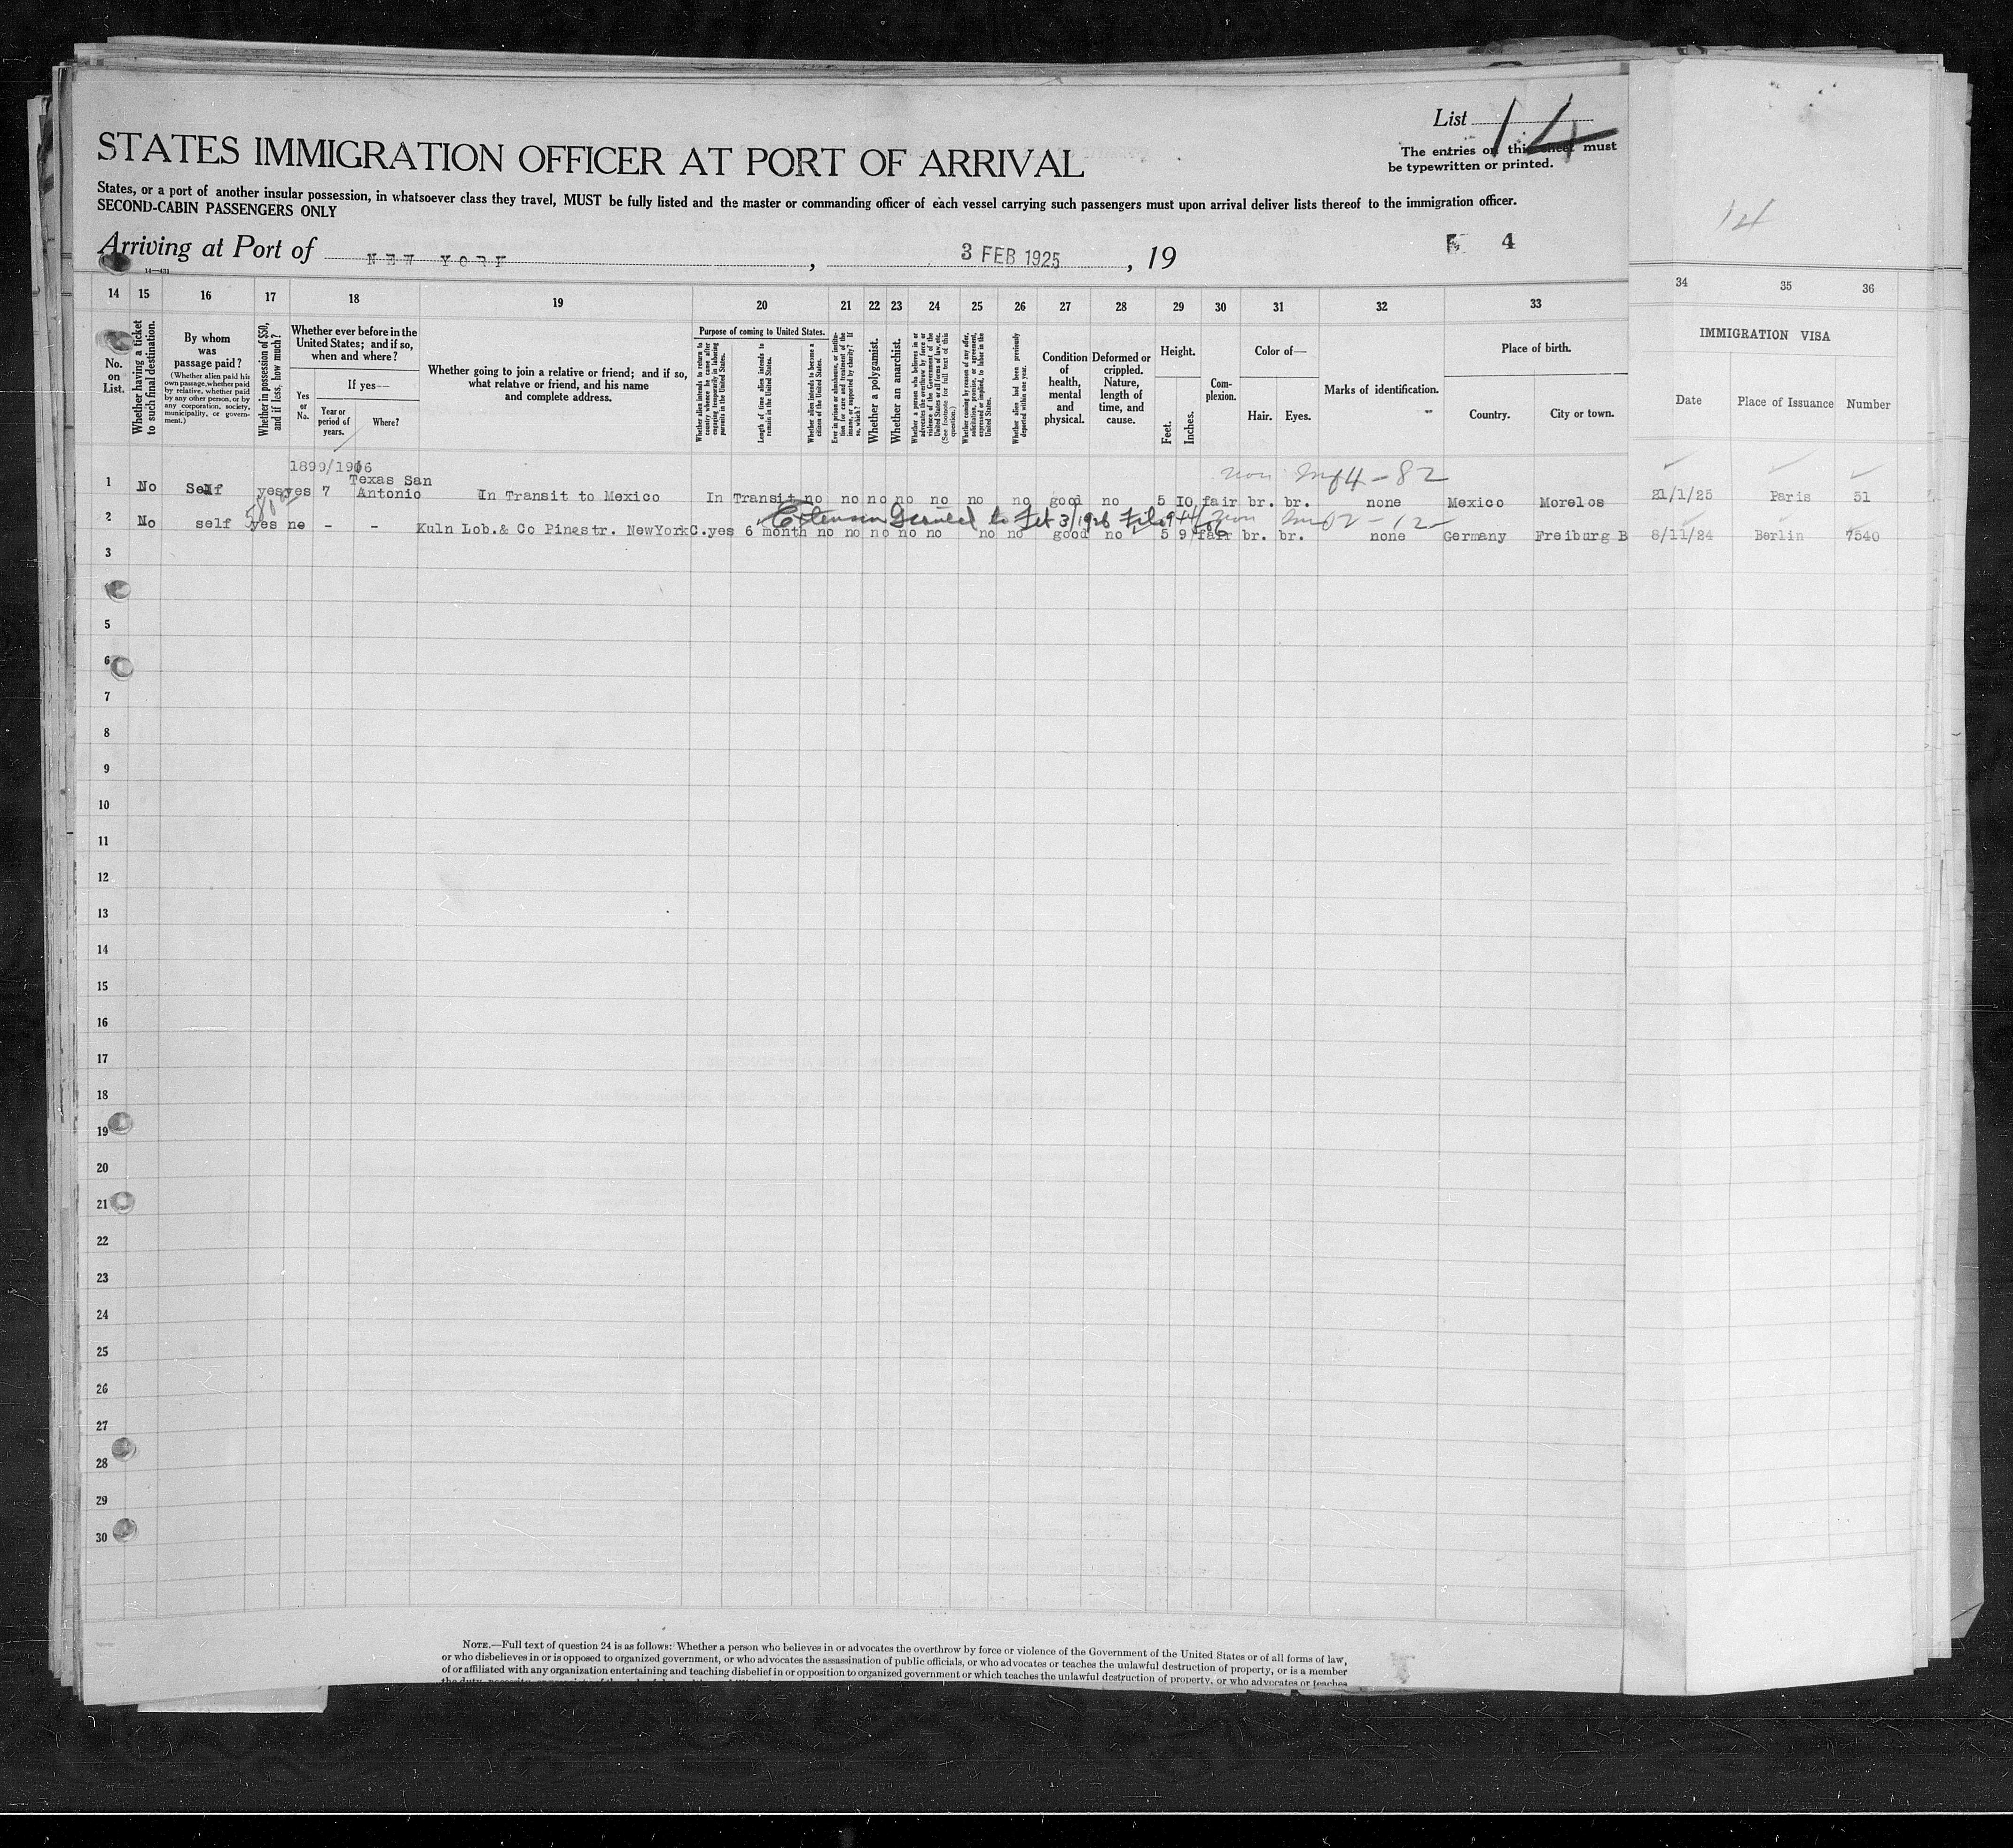 List 14
STATES IMMIGRATION OFFICER AT PORT OF ARRIVAL
The entries on this sheet must
be typewritten or printed.
States, or a port of another insular possession, in whatsoever class they travel, MUST be fully listed and the master or commanding officer of each vessel carrying such passengers must upon arrival deliver lists thereof to the immigration officer.
SECOND-CABIN PASSENGERS ONLY
14
Arriving at Port of NEW YORK, 3 FEB 1925, 19
4
14—431
14 15 16 17 18 19 20 21 22 23 24 25 26 27 28 29 30 31 32 33 34 35 36
No.
on
List.
Whether having a ticket
to such final destination.
By whom
was
passage paid?
(Whether alien paid his
own passage, whether paid
by relative, whether paid
by any other person, or by
any corporation, society,
municipality, or govern-
ment.)
Whether in possession of $50,
and if less, how much?
Whether ever before in the
United States; and if so,
when and where?
Yes
or
No.
If yes—
Year or
period of
years.
Where?
Whether going to join a relative or friend; and if so,
what relative or friend, and his name
and complete address.
Purpose of coming to United States.
Whether alien intends to return to
country whence he came after
engaging temporarily in laboring
pursuits in the United States.
Length of time alien intends to
remain in the United States.
Whether alien intends to become a
citizen of the United States.
Ever in prison or almshouse, or institu-
tion for care and treatment of the
insane, or supported by charity? If
so, which?
Whether a polygamist.
Whether an anarchist.
Whether a person who believes in or
advocates the overthrow by force or
violence of the Government of the
United States or all forms of law, etc.
(See footnote for full text of this
question.)
Whether coming by reason of any offer,
solicitation, promise, or agreement,
expressed or implied, to labor in the
United States.
Whether alien had been previously
deported within one year.
Condition
of
health,
mental
and
physical.
Deformed or
crippled.
Nature,
length of
time, and
cause.
Height.
Feet.
Inches.
Com-
plexion.
Color of—
Hair.
Eyes.
Marks of identification.
Place of birth.
Country.
City or town.
IMMIGRATION VISA
Date
Place of Issuance
Number
1899/1906
Texas San
non Im 4-82
1 No Self yes yes 7 Antonio In Transit to Mexico In Transit no no no no no no no good no 5 10 fair br. br. none Mexico Morelos 21/1/25 Paris 51
Extension Granted to Feb 3/1926 File
non Im 02-12
2 No self yes no - - Kuln Lob.& Co Pinestr. NewYorkC. yes 6 month no no no no no no no good no 5 9 fair br. br. none Germany Freiburg B 8/11/24 Berlin 7540
3
5
6
7
8
9
10
11
12
13
14
15
16
17
18
19
20
21
22
23
24
25
26
27
28
29
30
NOTE.—Full text of question 24 is as follows: Whether a person who believes in or advocates the overthrow by force or violence of the Government of the United States or of all forms of law,
or who disbelieves in or is opposed to organized government, or who advocates the assassination of public officials, or who advocates or teaches the unlawful destruction of property, or is a member
of or affiliated with any organization entertaining and teaching disbelief in or opposition to organized government or which teaches the unlawful destruction of property, or who advocates or teaches